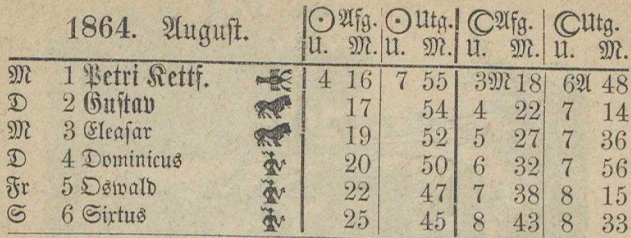 1864. August.
☉Afg. ☉Utg. ☾Afg. ☾Utg.
U. M. U. M. U. M. U. M.
M 1 Petri Kettf. 4 16 7 55 3M 18 6A 48
D 2 Gustav 17 54 4 22 7 14
M 3 Eleasar 19 52 5 27 7 36
D 4 Dominicus 20 50 6 32 7 56
Fr 5 Oswald 22 47 7 38 8 15
S 6 Sixtus 25 45 8 43 8 33